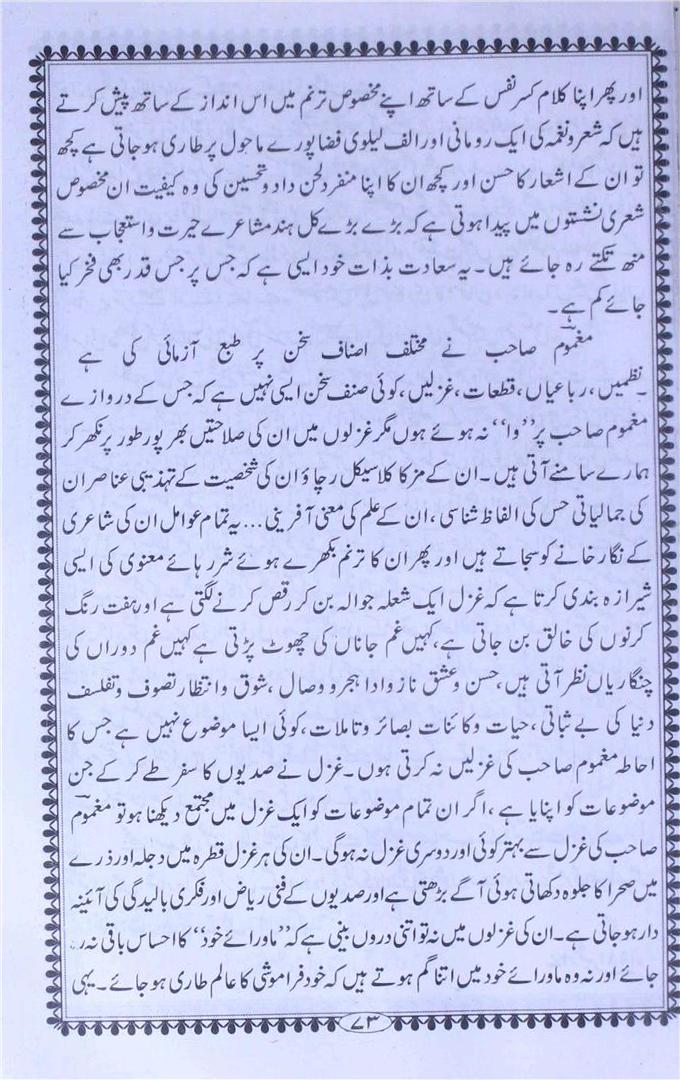 اور پھر اپنا کلام کسر نفس کے ساتھ اپنے مخصوص ترنم میں اس انداز کے ساتھ پیش کرتے
ہیں کہ شعر و نغمہ کی ایک رومانی اور الف لیلوی فضا پورے ماحول پر طاری ہو جاتی ہے کچھ
تو ان کے اشعار کا حسن اور کچھ ان کا اپنا منفرد لحن داد و تحسین کی وہ کیفیت ان مخصوص
شعری نشستوں میں پیدا ہوتی ہے کہ بڑے بڑے کل ہند مشاعرے حیرت و استعجاب سے
منھ تکتے رہ جائے ہیں۔ یہ سعادت بذات خود ایسی ہے کہ جس پر جس قدر بھی فخر کیا
جائے کم ہے۔
مغمومؔ صاحب نے مختلف اصناف سخن پر طبع آزمائی کی ہے
۔ نظمیں، رباعیاں، قطعات، غزلیں، کوئی صنف سخن ایسی نہیں ہے کہ جس کے دروازے
مغموم صاحب پر ’’وا‘‘ نہ ہوئے ہوں مگر غزلوں میں ان کی صلاحیتیں بھر پور طور پر نکھر کر
ہمارے سامنے آتی ہیں۔ ان کے مزکا کلاسیکل رچاؤ ان کی شخصیت کے تہذیبی عناصر ان
کی جمالیاتی حس کی الفاظ شناسی، ان کے علم کی معنی آفرینی... یہ تمام عوامل ان کی شاعری
کے نگار خانے کو سجاتے ہیں اور پھر ان کا ترنم بکھرے ہوئے شرر ہائے معنوی کی ایسی
شیرازہ بندی کرتا ہے کہ غزل ایک شعلہ جوالہ بن کر رقص کرنے لگتی ہے اور ہفت رنگ
کرنوں کی خالق بن جاتی ہے، کہیں غم جاناں کی چھوٹ پڑتی ہے کہیں غم دوراں کی
چنگاریاں نظر آتی ہیں، حسن و عشق ناز و ادا ہجر و وصال، شوق و انتظار تصوف و تفلسف
دنیا کی بے ثباتی، حیات و کائنات بصائر و تاملات، کوئی ایسا موضوع نہیں ہے جس کا
احاطہ مغموم صاحب کی غزلیں نہ کرتی ہوں۔ غزل نے صدیوں کا سفر طے کر کے جن
موضوعات کو اپنایا ہے، اگر ان تمام موضوعات کو ایک غزل میں مجتمع دیکھنا ہو تو مغمومؔ
صاحب کی غزل سے بہتر کوئی اور دوسری غزل نہ ہوگی۔ ان کی ہر غزل قطرہ میں دجلہ اور ذرے
میں صحرا کا جلوہ دکھاتی ہوئی آگے بڑھتی ہے اور صدیوں کے فنی ریاض اور فکری بالیدگی کی آئینہ
دار ہو جاتی ہے۔ ان کی غزلوں میں نہ تو اتنی دروں بینی ہے کہ ’’ماورائے خود‘‘ کا احساس باقی نہ رہ
جائے اور نہ وہ ماورائے خود میں اتنا گم ہوتے ہیں کہ خود فراموشی کا عالم طاری ہو جائے۔ یہی
۷۳